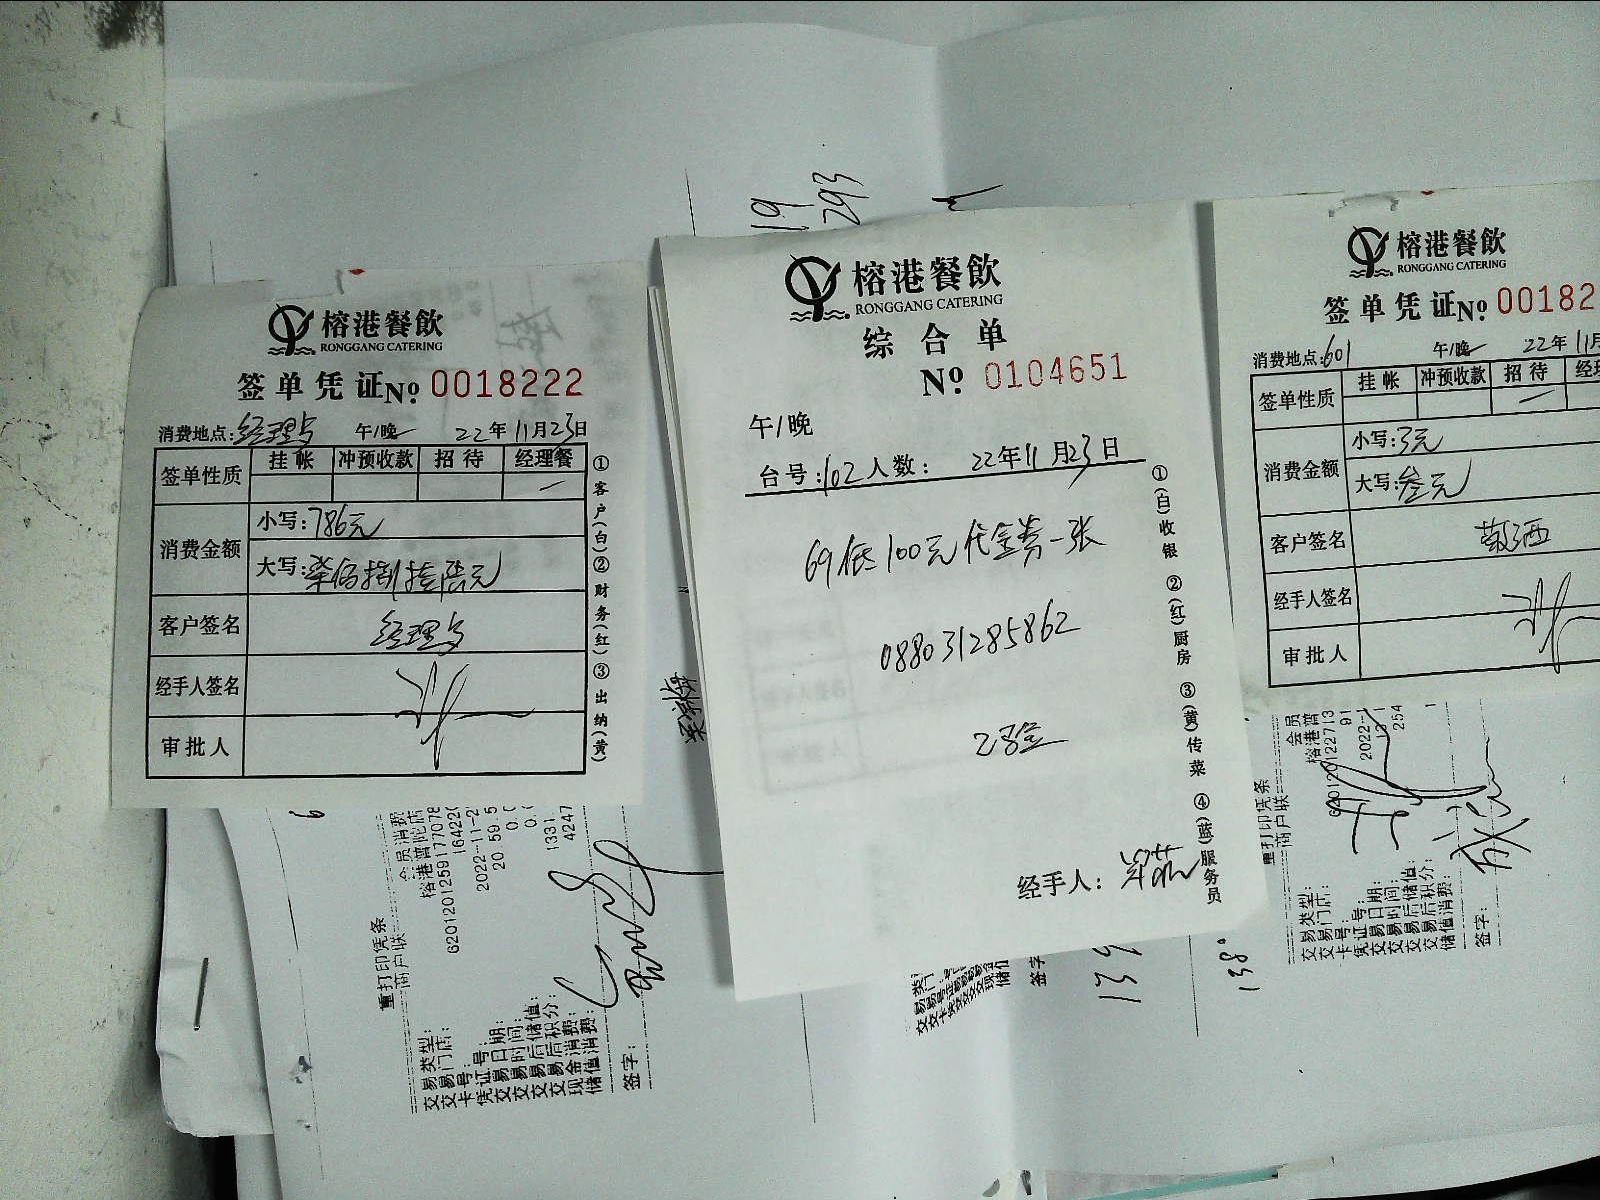 19
293
榕港餐飲
RONGGANG CATERING
签单凭证 No. 0018222
消费地点: 经理与 午/晚 22年11月23日
签单性质 挂帐 冲预收款 招待 经理餐
消费金额
小写: 786元
大写: 柒佰捌拾陆元
客户签名 经理与
经手人签名
审批人
①客户(白)②财务(红)③出纳(黄)
榕港餐飲
RONGGANG CATERING
综合单
No. 0104651
午/晚
台号: 102 人数: 22年11月23日
69抵100元代金券一张
088031285862
已验
经手人:
①(白)收银 ②(红)厨房 ③(黄)传菜 ④(蓝)服务员
榕港餐飲
RONGGANG CATERING
签单凭证 No. 00182
消费地点: 601 午/晚 22年11月
签单性质 挂帐 冲预收款 招待 经理
消费金额
小写: 3元
大写: 叁元
客户签名
经手人签名
审批人
重打印凭条
商户联
交易类型: 会员消费
交易门店: 榕港普陀店
卡号: 6201201259177078
凭证号: 164220
交易日期: 2022-11-2
交易时间: 20 59 5
交易后储值: 0.
交易后积分: 0.
现金消费: 1331
储值消费: 4247
签字:
重打印凭条
商户联
交易类型: 会员
交易门店: 榕港普
卡号: 620120122713
凭证号: 91
交易日期: 2022-1
交易时间:
交易后储值: 254
交易后积分:
储值消费: 1
签字:
签字
138